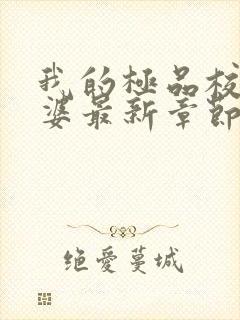 我的極品校
婆最新章節
绝愛蔓城